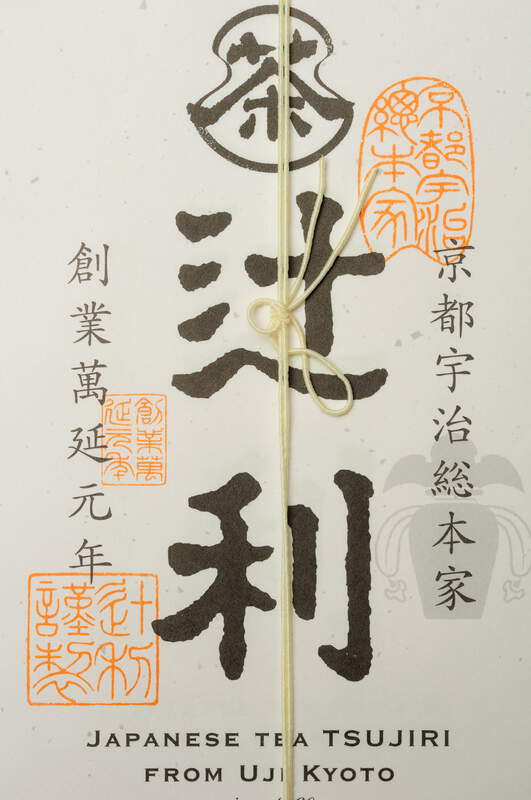 茶
京都宇治
總本家
京都宇治総本家
辻利
創業萬延元年
創業萬
延元年
辻利
謹製
JAPANESE TEA TSUJIRI
FROM UJI KYOTO